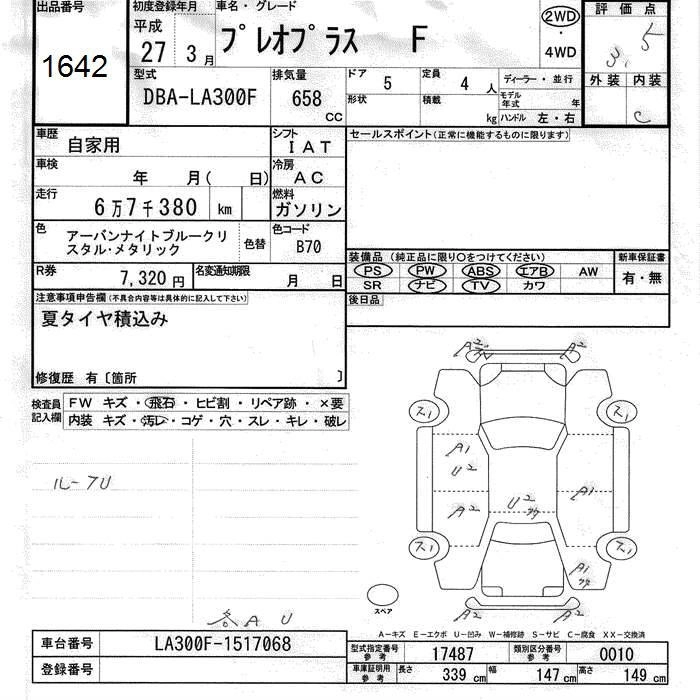 出品番号
1642
初度登録年月
平成
27 3月
車名・グレード
プレオプラス F
2WD
・
4WD
評価点
3.5
外装 内装
C
型式
DBA-LA300F
排気量
658
cc
ドア 5
定員 4 人
ディーラー・並行
形状
積載 kg
モデル年式 年
ハンドル 左・右
車歴
自家用
シフト
IAT
車検
年 月( 日)
冷房
AC
走行
6万7千380 km
燃料
ガソリン
色
アーバンナイトブルークリ
スタル・メタリック
色替
色コード
B70
R券
7,320円
名変通知期限
月 日
セールスポイント(正常に機能するものに限ります)
装備品 (純正品に限り○をつけてください)
PS PW ABS エアB AW
SR ナビ TV カワ
新車保証書
有・無
後日品
注意事項申告欄(不具合内容等は具体的に記入して下さい)
夏タイヤ積込み
修復歴 有〔箇所 〕
検査員
記入欄
FW キズ・飛石・ヒビ割・リペア跡・×要
内装 キズ・汚レ・コゲ・穴・スレ・キレ・破レ
ルーフU
各A U
A2
A2
ス1
ス1
A1
U2
A2
U2
A1
ス1
ス1
A1
A2
A2
スペア
A-キズ E-エクボ U-凹み W-補修跡 S-サビ C-腐食 XX-交換済
車台番号
LA300F-1517068
登録番号
型式指定番号
参考
17487
類別区分番号
参考
0010
車庫証明用
参考
長さ 339 cm
幅 147 cm
高さ 149 cm